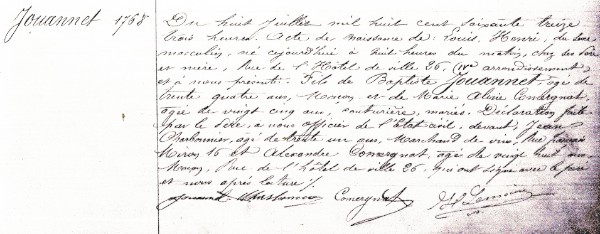 Jouannet 1768
Du huit Juillet mil huit cent soixante treize
trois heures. Acte de naissance de Louis, Henri, du sexe
masculin, né cejourd'hui à huit heures du matin, chez ses père
et mère, Rue de l'Hôtel de ville 26, (IVe arrondissement)
et à nous présenté. Fils de Baptiste Jouannet âgé de
trente quatre ans, Maçon et de Marie Comergnat,
âgée de vingt cinq ans, couturière, mariés. Déclaration faite
par le père, à nous officier de l'Etat civil, devant, Jean
Charbonnier, âgé de trente un ans, Marchand de vin, Rue
16 et Alexandre Comergnat, âgé de vingt huit ans
Maçon, Rue de l'hôtel de ville 26. qui ont signé avec le père
et nous après lecture /.
Jouannet Charbonnier Comergnat